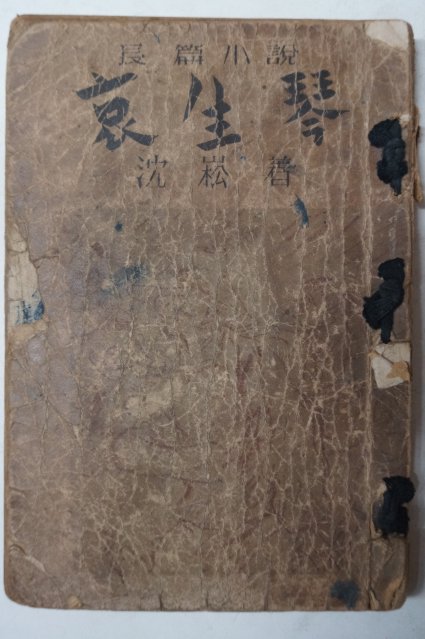 長篇小說
哀生琴
沈崧著